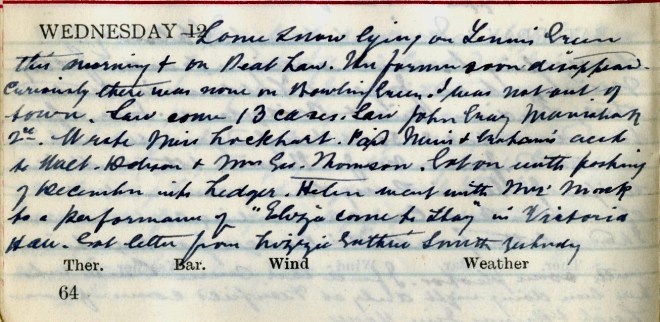 WEDNESDAY 12 Some snow lying on Tennis Green
this morning & on Peat Law. The former soon disappear.
Curiously there was none on Bowling Green. I was not out of
town. Saw some 13 cases. Saw John Gray
2nd. Wrote Miss Lockhart. Paid & Graham's acct
to Walt. Dobson & Mrs Geo. Thomson. Got on with posting
of December into Ledger. Helen went with Mrs
to a performance of "Eliza come to Stay" in Victoria
Hall. Got letter from Lizzie Guthrie Smith
Ther. Bar. Wind Weather
64